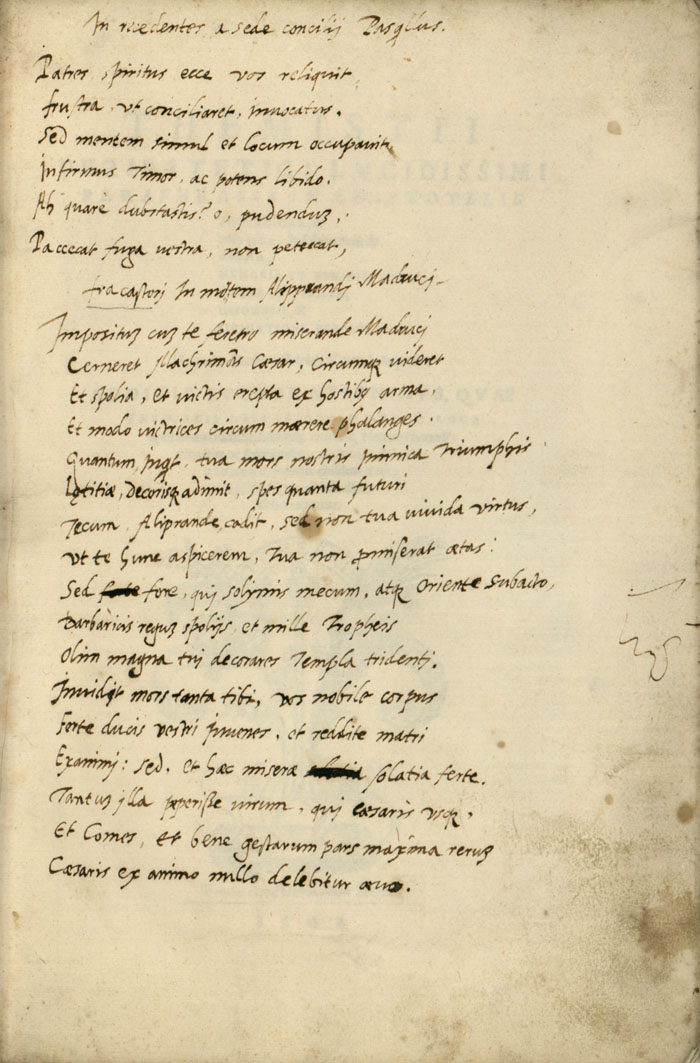 In recedentes a sede concilij Pasqllus.
Patres spiritus ecce vos reliquit,
frustra, vt conciliaret, inuocatus.
Sed mentem simul et locum occupauit,
Infirmus Timor, ac potens libido.
Ah quare dubitastis? o, pudenduz,
Paccecat fuga vestra, non petercat,
fracastorij In mortem Alipprandj Madrucj
Impositus cuz te feretro miserande Madrucj
Cerneret illachrimans Cæsar, circumq; uideret
Et spolia, et uictis erepta ex hostibq arma,
Et modo uictrices circum mærere phalanges.
Quantum, inqt, tua mors nostris inimica Triumphis
Lętitiæ, decorisq; adimit, spes quanta futuri
Tecum, Aliprande, cadit, sed non tua uiuida uirtus,
Vt te hunc aspicerem, tua non promiserat ætas:
Sed fore, qui solymis mecum, atq; Oriente subacto,
Barbaricis reguz spolijs, et mille Tropheis
Olim magna tui decorares Templa tridenti.
Inuidit mors tanta tibi, vos nobile corpus
Ferte ducis vestri iuuenes, et reddite matri
Exanimj: sed, et hæc miseræ solatia ferte.
Tantuz illa peperisse uirum, qui cæsaris vsq;,
Et Comes, et bene gestarum pars maxima reruz
Cæsaris ex animo nullo delebitur æuo.